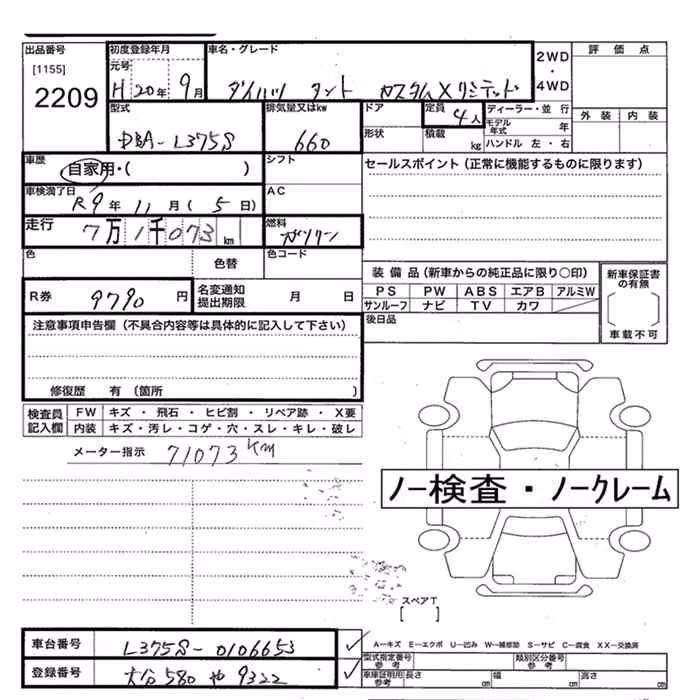 出品番号
[1155]
2209
初度登録年月
元号
H 20年 9月
車名・グレード
ダイハツ タント カスタムXリミテッド
2WD
・
4WD
評価点
外装 内装
型式
DBA-L375S
排気量又はkw
660
ドア
形状
定員
4人
積載 kg
ディーラー・並行
モデル年式 年
ハンドル 左・右
車歴
自家用・( )
シフト
セールスポイント (正常に機能するものに限ります)
車検満了日
R9年 11月 (5日)
AC
走行
7万1千073km
燃料
ガソリン
色
色替
色コード
装備品 (新車からの純正品に限り○印)
PS PW ABS エアB アルミW
サンルーフ ナビ TV カワ
新車保証書の有無
車載不可
R券
9790円
名変通知
提出期限
月 日
後日品
注意事項申告欄 (不具合内容等は具体的に記入して下さい)
修復歴 有 (箇所 )
検査員記入欄
FW キズ・飛石・ヒビ割・リペア跡・X要
内装 キズ・汚レ・コゲ・穴・スレ・キレ・破レ
メーター指示 71073 km
ノー検査・ノークレーム
スペアT
[ ]
車台番号
L375S-0106653
登録番号
大分580や9322
A-キズ E-エクボ U-凹み W-補修跡 S-サビ C-腐食 XX-交換済
型式指定番号
参考
類別区分番号
参考
車庫証明用
参考
長さ cm
幅 cm
高さ cm